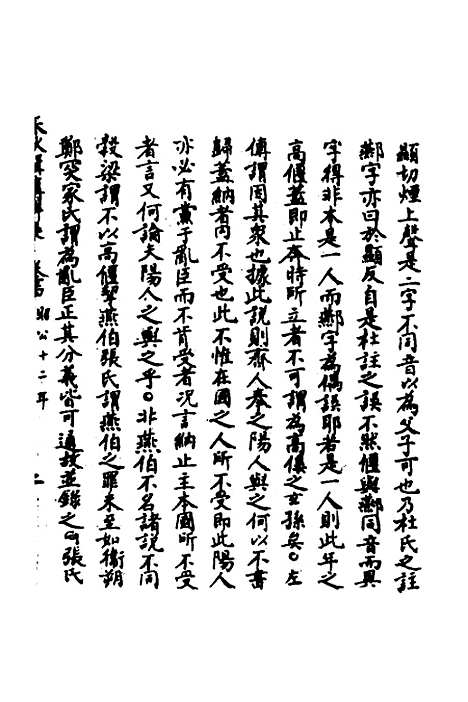 顯切煙上聲是二字不同音以為父子可也乃杜氏之註
酀字亦曰於顯反自是杜註之誤不然偃與酀同音而異
字得非本是一人而酀字為偶誤耶若是一人則此年之
高偃蓋即止奔時所立者不可謂為高傒之玄孫矣○左
傳謂因其衆也據此說則齊人奉之陽人與之何以不書
歸蓋納者問不受也此不惟在國之人所不受即此陽人
亦必有黨于亂臣而不肯受者況言納止主本國所不受
者言又何論夫陽人之與之乎○非燕伯不名諸說不同
穀梁謂不以高偃挈燕伯張氏謂燕伯之罪未至如衛朔
鄭突家氏謂為亂臣正其分義皆可通故並錄之○張氏
昭公十二年